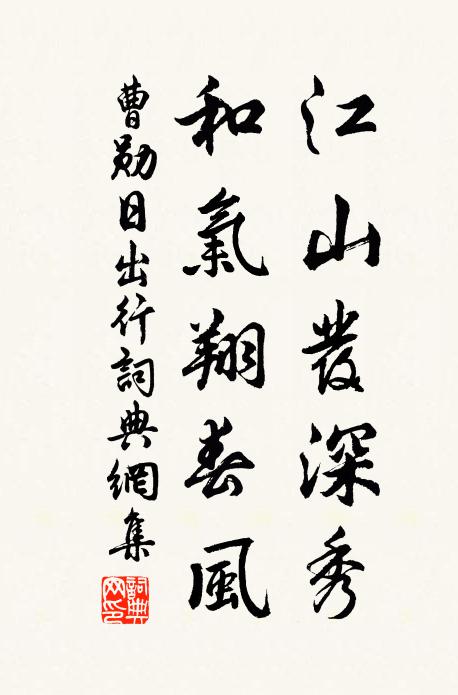 江山發深秀
和氣翔春風
曹勛日出行詞典網集
詞典網印